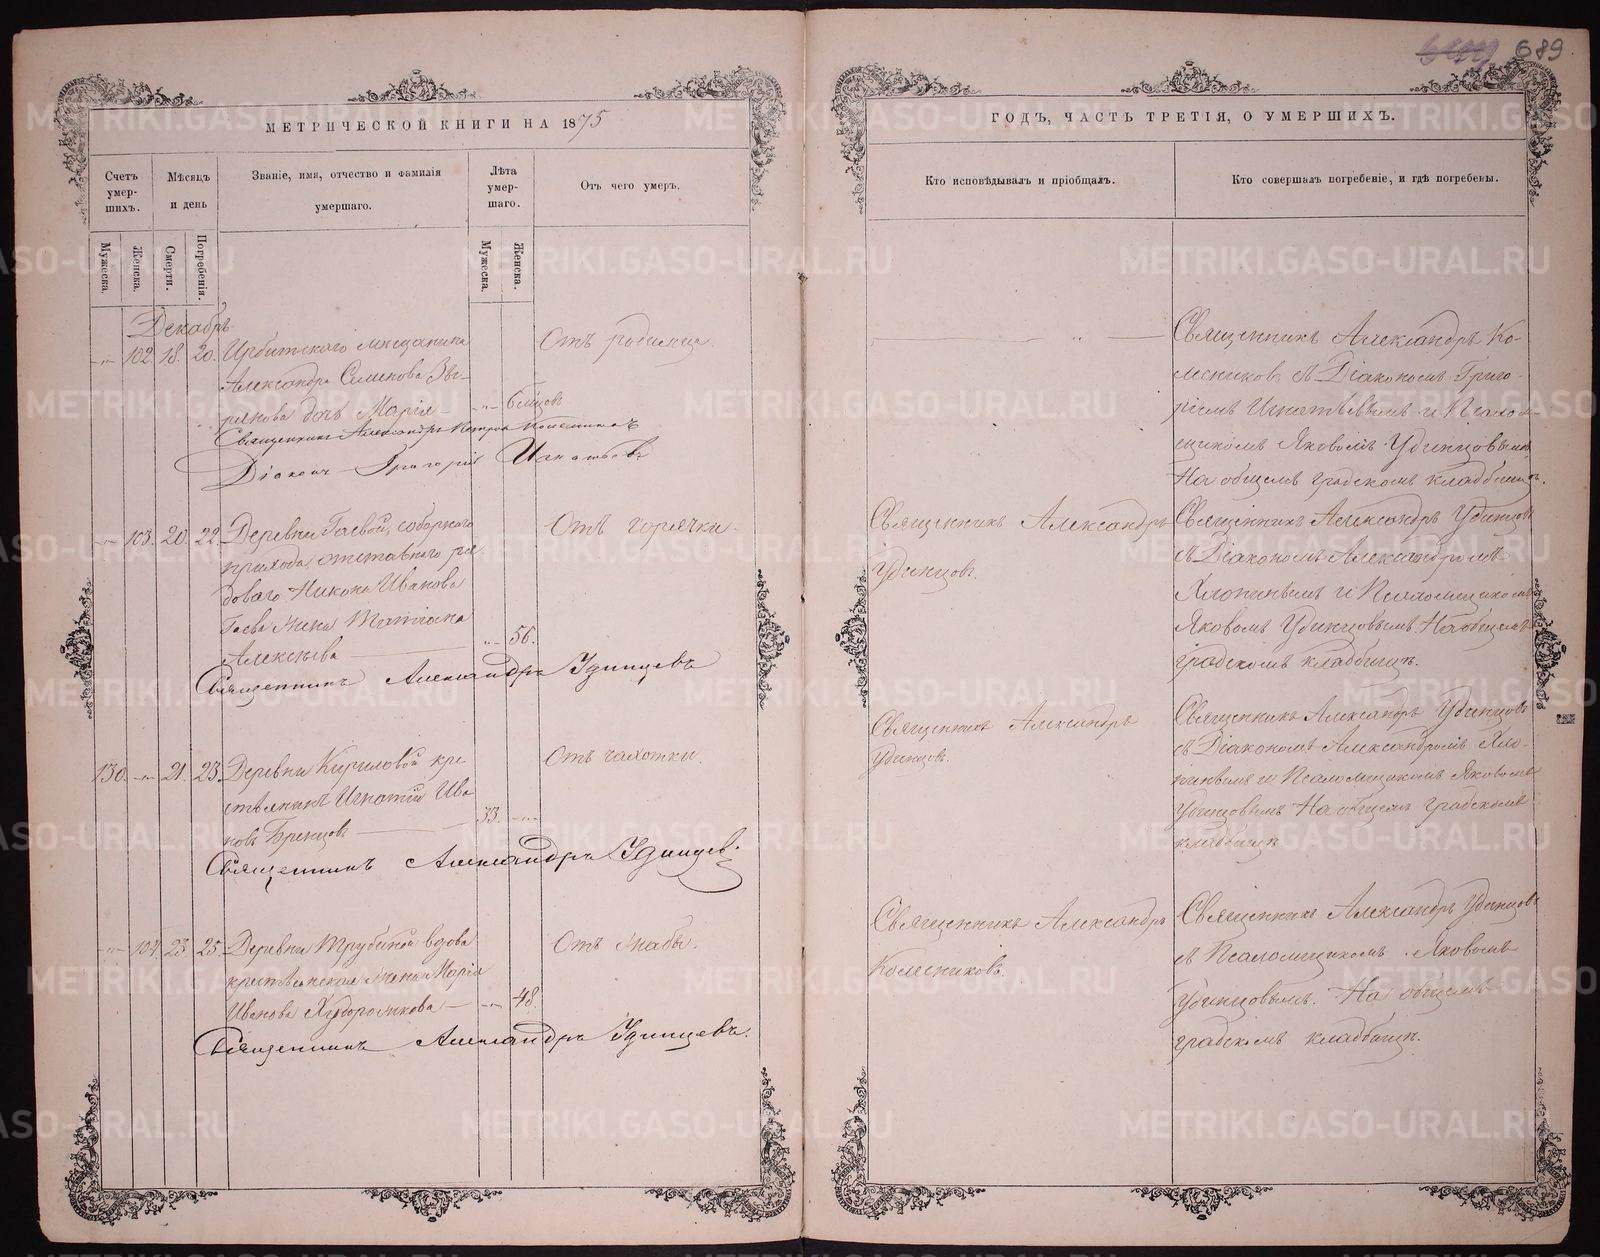 689
МЕТРИЧЕСКОЙ КНИГИ НА 1875
ГОДЪ, ЧАСТЬ ТРЕТІЯ, О УМЕРШИХЪ.
Счетъ умер-шихъ.
Мѣсяцъ и день
Званіе, имя, отчество и фамилія
умершаго.
Лѣта умер-шаго.
Отъ чего умеръ.
Кто исповѣдывалъ и пріобщалъ.
Кто совершалъ погребеніе, и гдѣ погребены.
Мужеска.
Женска.
Смерти.
Погребенія.
Мужеска.
Женска.
Декабрь
102. 18. 20. Ирбитскаго мѣщанина
Александра Семенова Зы-
рянова дочь Марія
6 мцовъ
Отъ родимца.
Священникъ Александръ Ко-
лесниковъ съ Діакономъ Григо-
ріемъ Игнатьевымъ и Псалом-
щикомъ Яковомъ Удинцовымъ
На общемъ градскомъ кладбищѣ.
Священникъ Александръ Петровъ Колесниковъ
Діаконъ Григорій Игнатьевъ
103. 20. 22. Деревни Гаевой, соборнаго
прихода, отставнаго ря-
доваго Никона Иванова
Гаева жена Татіана
Алексѣева
56.
Отъ горячки.
Священникъ Александръ
Удинцовъ.
Священникъ Александръ Удинцовъ
съ Діакономъ Александромъ
Хлопинымъ и Псаломщикомъ
Яковомъ Удинцовымъ. На общемъ
градскомъ кладбищѣ.
Священникъ Александръ Удинцевъ
130. 21. 23. Деревни Кириловой кре-
стьянинъ Игнатій Ива-
новъ Бренцовъ
33.
Отъ чахотки.
Священникъ Александръ
Удинцовъ.
Священникъ Александръ Удинцовъ
съ Діакономъ Александромъ Хло-
пинымъ и Псаломщикомъ Яковомъ
Удинцовымъ На общемъ градскомъ
кладбищѣ
Священникъ Александръ Удинцевъ.
104. 23 25. Деревни Трубиной вдова
крестьянская жена Марія
Иванова Худорожкова
48.
Отъ жабы.
Священникъ Александръ
Колесниковъ.
Священникъ Александръ Удинцовъ
съ Псаломщикомъ Яковомъ
Удинцовымъ. На общемъ
градскомъ кладбищѣ.
Священникъ Александръ Удинцевъ.
METRIKI.GASO-URAL.RU